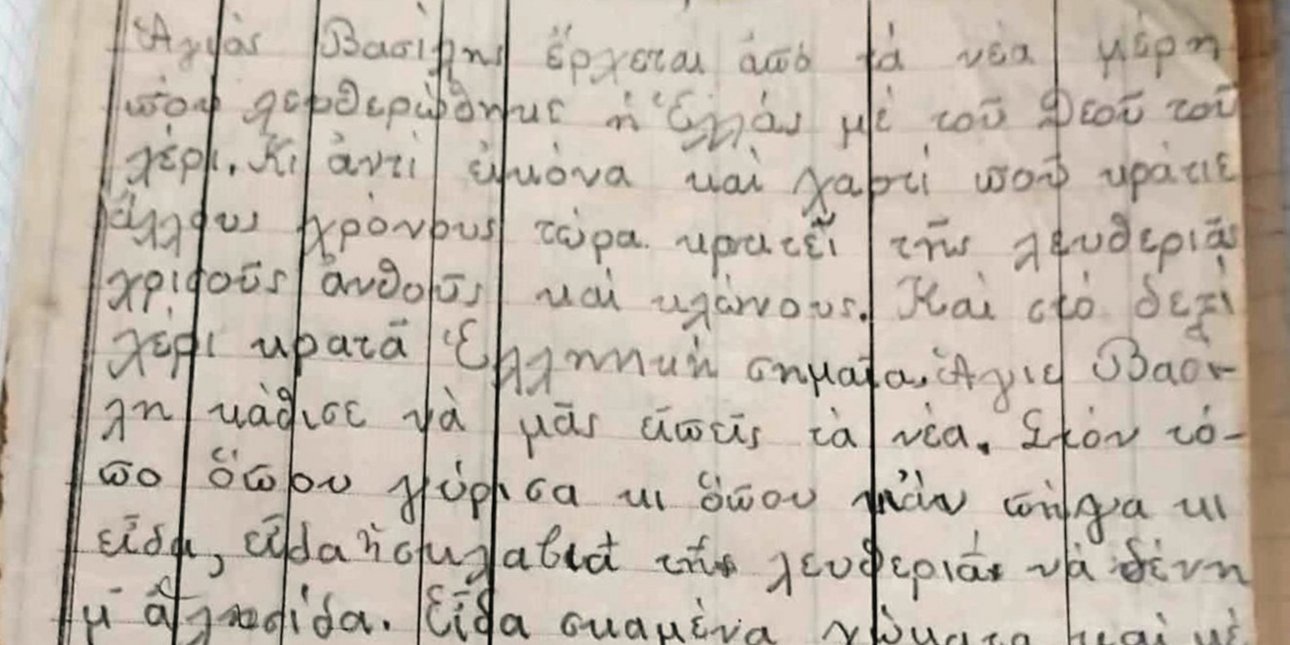 Ἁγιὸς Βασίλης ἔρχεται ἀπὸ τὰ νέα μέρη
ποὺ λευθερώθηκε ἡ Ἑλλάς μὲ τοῦ Θεοῦ τοῦ
χέρι. Κι ἀντὶ εἰκόνα καὶ χαρτί ποῦ κράτιε
ἄλλους χρόνους τώρα κρατεῖ τῆς λευθεριᾶς
χρισοῦς ἀνθοῦς καὶ κλώνους. Καὶ στό δεξί
χέρι κρατᾶ Ἑλληνική σημαῖα. Ἅγιε Βασί-
λη κάθισε νὰ μᾶς εἰπεῖς τὰ νέα. Στόν τό-
πο ὅπου γύρισα κι ὅπου κἄν πήγα κι
εἶδα, εἶδα ἡ σκλαβιά τῆς λευθεριᾶς νὰ δένη
μ' ἁλυσίδα. Εἶδα σκαμένα χώματα καί μὲ